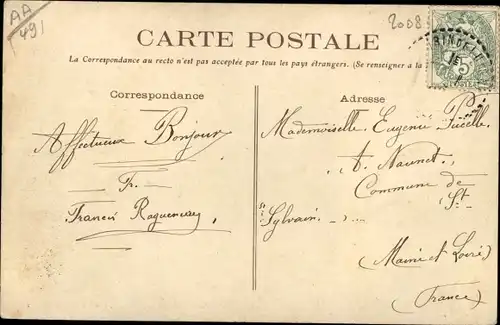 AA
491
2008
CARTE POSTALE
La Correspondance au recto n'est pas acceptée par tous les pays étrangers. (Se renseigner à la
Correspondance
Adresse
Affectueux Bonjour
Fr.
Francis
Mademoiselle Eugénie
A.
Commune de
St
Sylvain
(Maine et Loire)
(France)